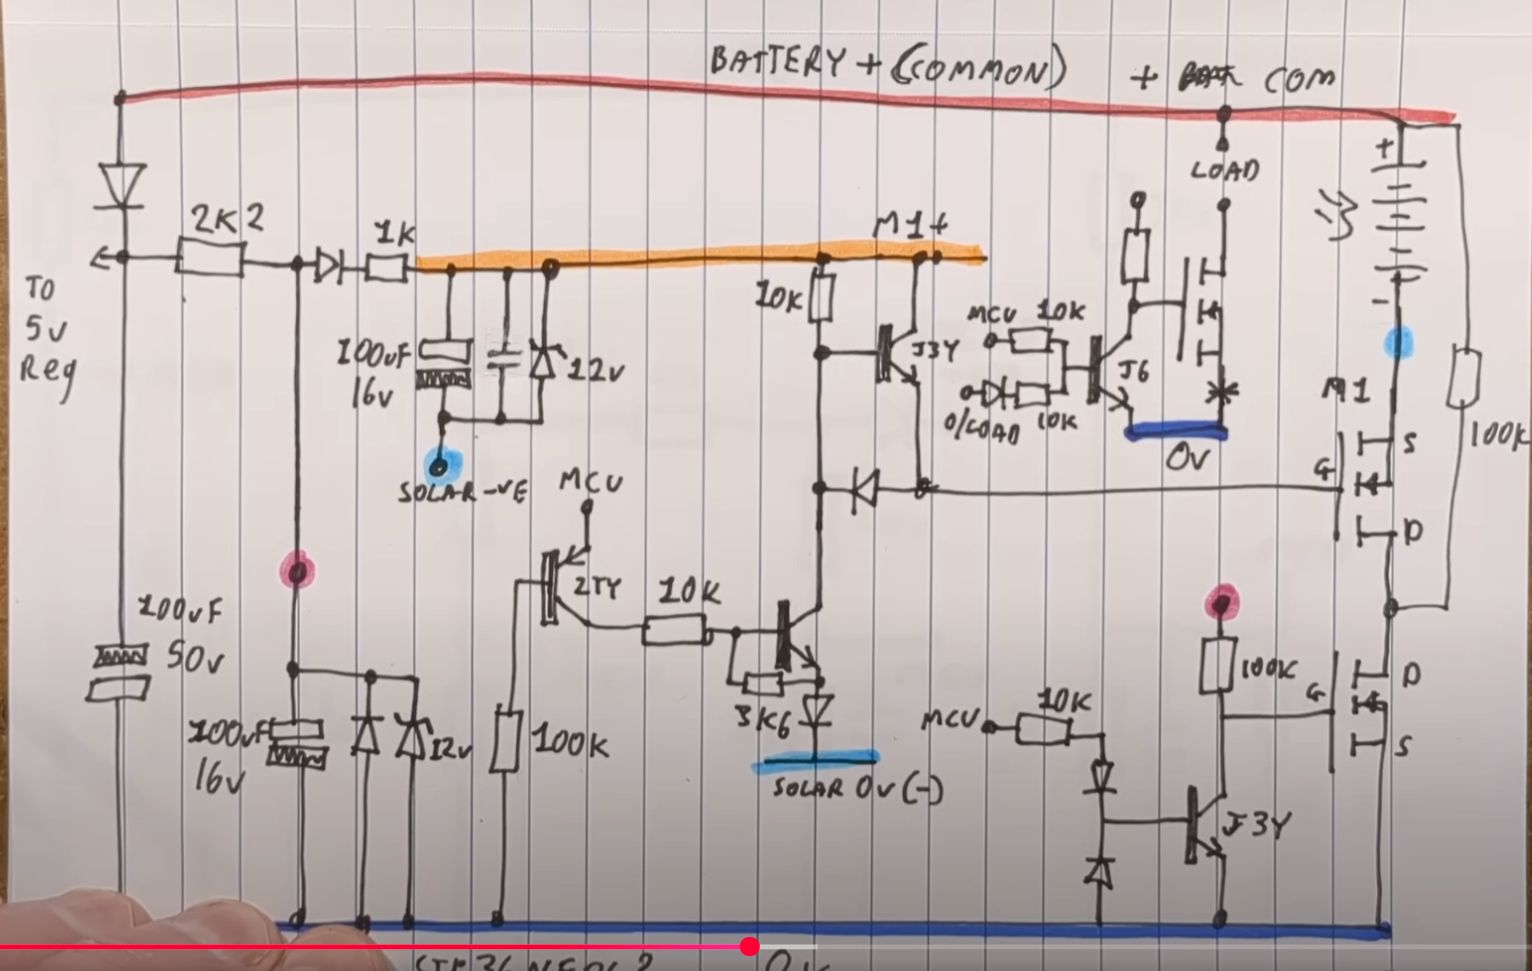 BATTERY + (COMMON)
+ BATT COM
LOAD
+
2K2
1K
M1+
TO
5v
Reg
10K
MCU 10K
J3Y
J6
100uF
16v
12v
O/LOAD 10K
0v
-
M1
S
G
D
100K
SOLAR -VE
MCU
2TY
10K
100uF
50v
3K6
100K
100uF
16v
12v
SOLAR 0v (-)
MCU
10K
100K
G
D
S
J3Y